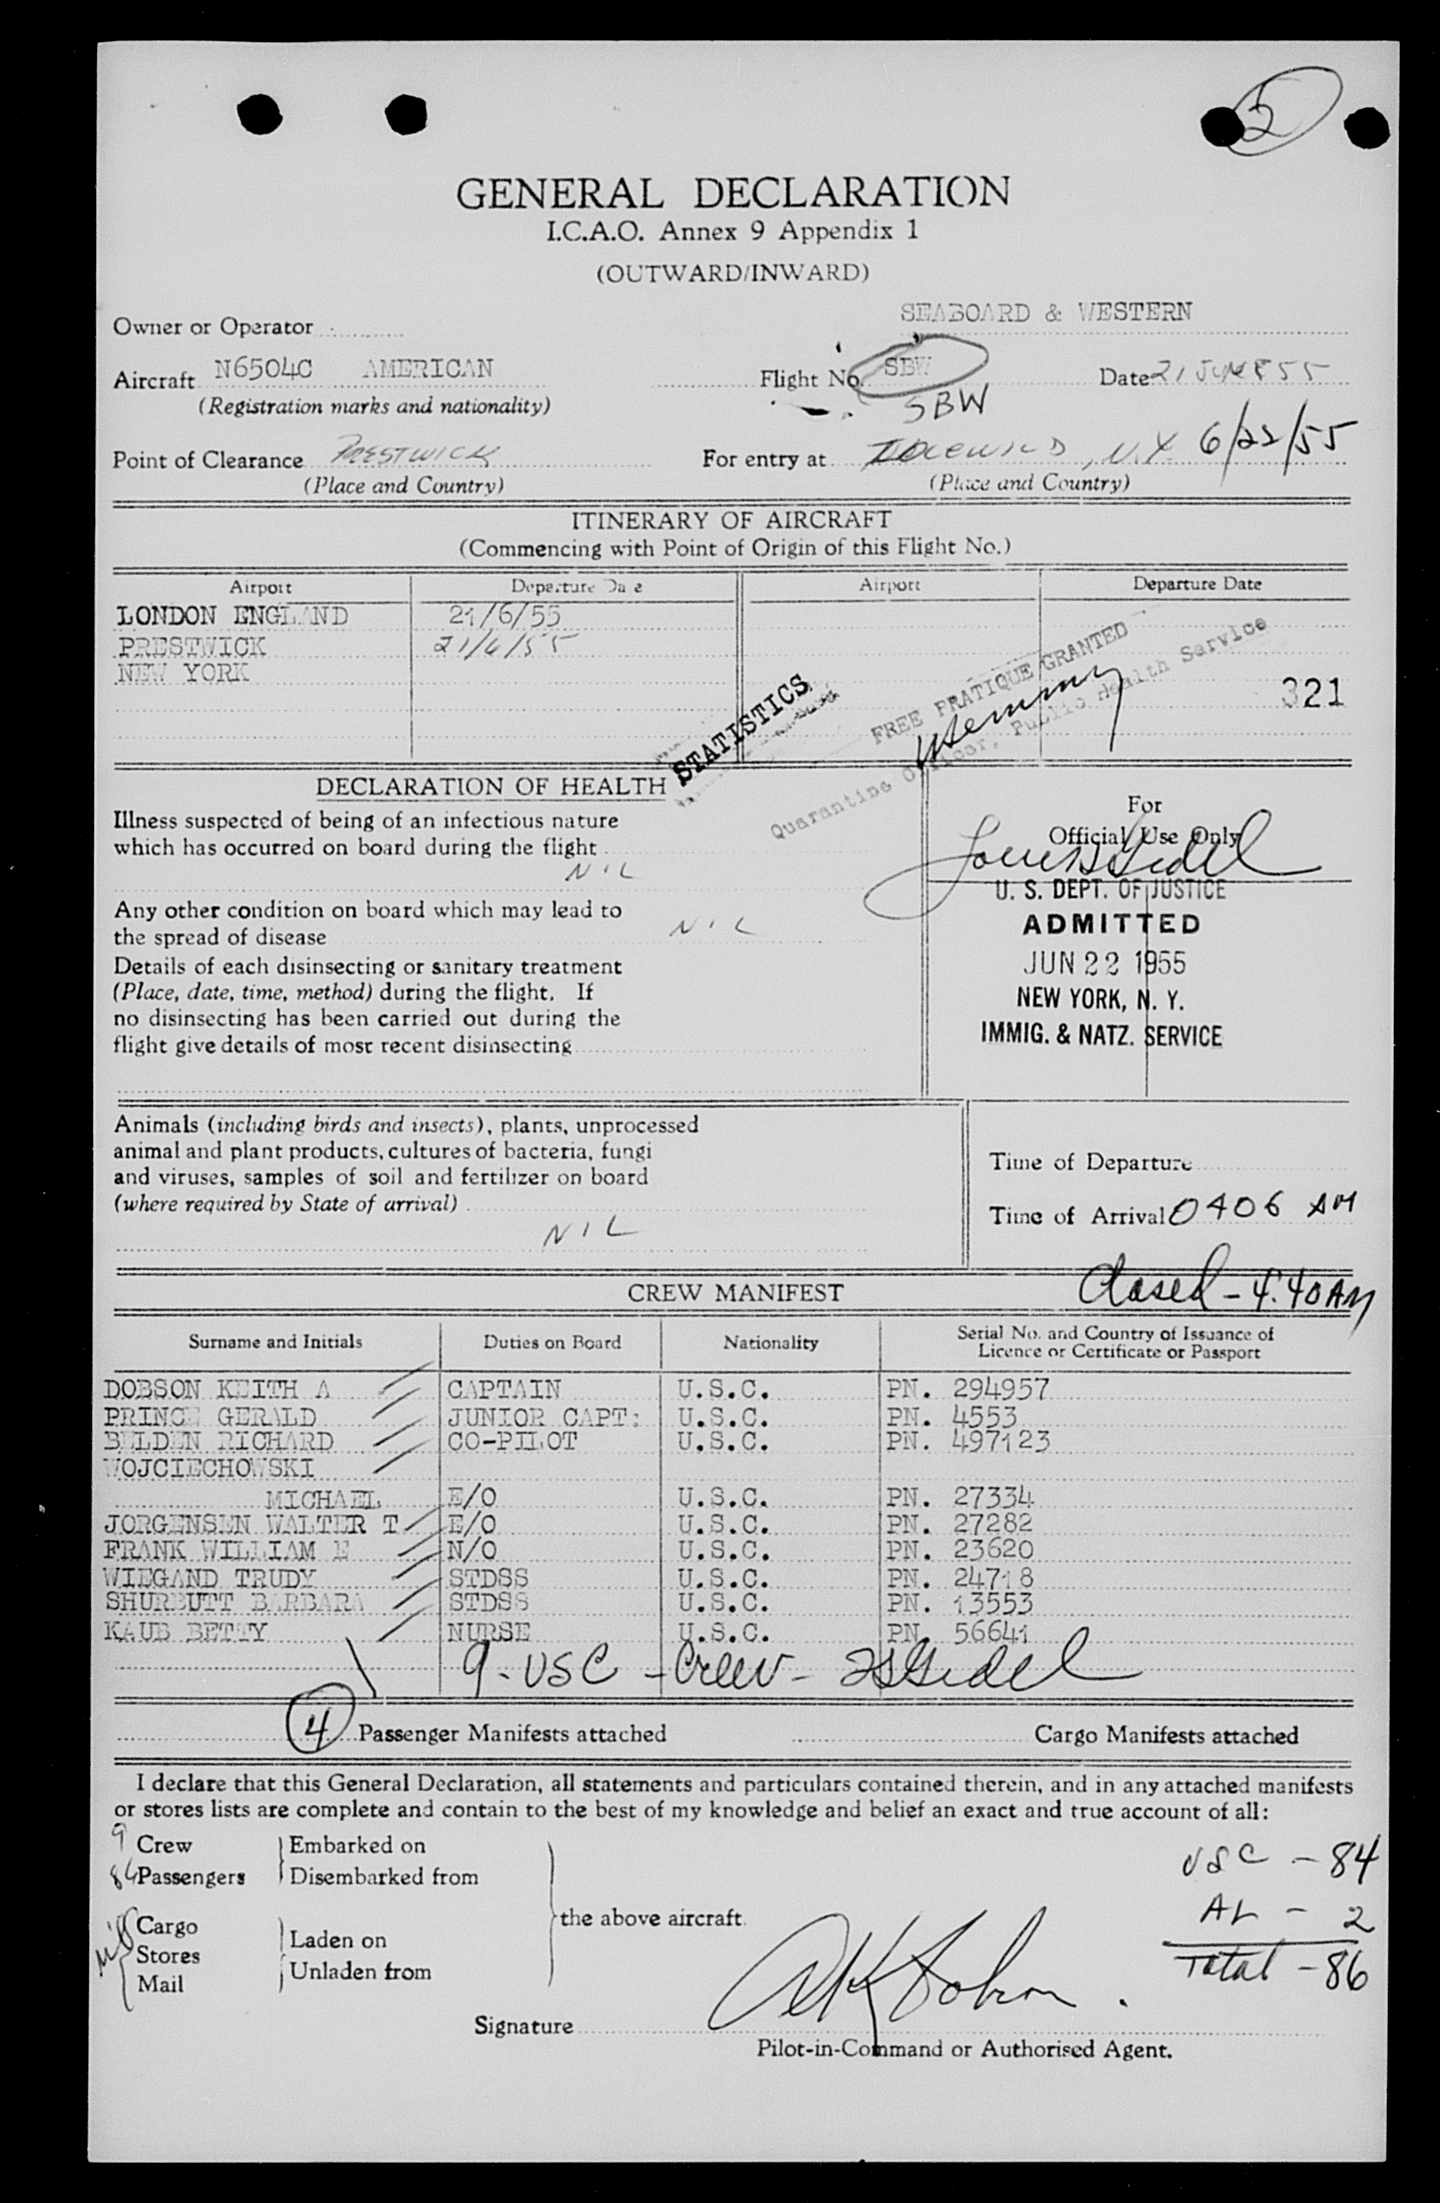 5
GENERAL DECLARATION
I.C.A.O. Annex 9 Appendix 1
(OUTWARD/INWARD)
Owner or Operator SEABOARD & WESTERN
Aircraft N6504C AMERICAN Flight No. SBW Date 21 JUNE 55
(Registration marks and nationality) SBW
Point of Clearance PRESTWICK For entry at IDLEWILD, N.Y. 6/22/55
(Place and Country) (Place and Country)
ITINERARY OF AIRCRAFT
(Commencing with Point of Origin of this Flight No.)
Airport Departure Date Airport Departure Date
LONDON ENGLAND 21/6/55
PRESTWICK 21/6/55
NEW YORK
STATISTICS
FREE PRATIQUE GRANTED
Quarantine Officer, Public Health Service
321
DECLARATION OF HEALTH
Illness suspected of being of an infectious nature
which has occurred on board during the flight
NIL
Any other condition on board which may lead to
the spread of disease NIL
Details of each disinsecting or sanitary treatment
(Place, date, time, method) during the flight. If
no disinsecting has been carried out during the
flight give details of most recent disinsecting
For
Official Use Only
U. S. DEPT. OF JUSTICE
ADMITTED
JUN 22 1955
NEW YORK, N. Y.
IMMIG. & NATZ. SERVICE
Animals (including birds and insects), plants, unprocessed
animal and plant products, cultures of bacteria, fungi
and viruses, samples of soil and fertilizer on board
(where required by State of arrival)
NIL
Time of Departure
Time of Arrival 0406 AM
Closed - 4:40 AM
CREW MANIFEST
Surname and Initials Duties on Board Nationality Serial No. and Country of Issuance of
Licence or Certificate or Passport
DOBSON KEITH A CAPTAIN U.S.C. PN. 294957
PRINCE GERALD JUNIOR CAPT: U.S.C. PN. 4553
BELDEN RICHARD CO-PILOT U.S.C. PN. 497123
WOJCIECHOWSKI
MICHAEL E/O U.S.C. PN. 27334
JORGENSEN WALTER T E/O U.S.C. PN. 27282
FRANK WILLIAM E N/O U.S.C. PN. 23620
WIEGAND TRUDY STDSS U.S.C. PN. 24718
SHURBUTT BARBARA STDSS U.S.C. PN. 13553
KAUB BETTY NURSE U.S.C. PN. 56641
9 - USC - Crew -
4 Passenger Manifests attached Cargo Manifests attached
I declare that this General Declaration, all statements and particulars contained therein, and in any attached manifests
or stores lists are complete and contain to the best of my knowledge and belief an exact and true account of all:
9 Crew Embarked on
86 Passengers Disembarked from
the above aircraft.
Nil Cargo
Stores Laden on
Mail Unladen from
USC - 84
AL - 2
Total - 86
Signature
Pilot-in-Command or Authorised Agent.